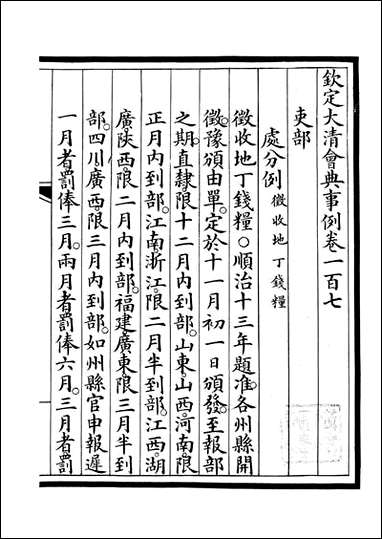 欽定大清會典事例卷一百七
吏部
處分例 徵收地丁錢糧
徵收地丁錢糧○順治十三年題准各州縣開
徵豫頒由單定於十一月初一日頒發至報部
之期直隸限十二月內到部山東山西河南限
正月內到部江南浙江限二月半到部江西湖
廣陝西限二月內到部福建廣東限三月半到
部四川廣西限三月內到部如州縣官申報遲
一月者罰俸三月兩月者罰俸六月三月者罰